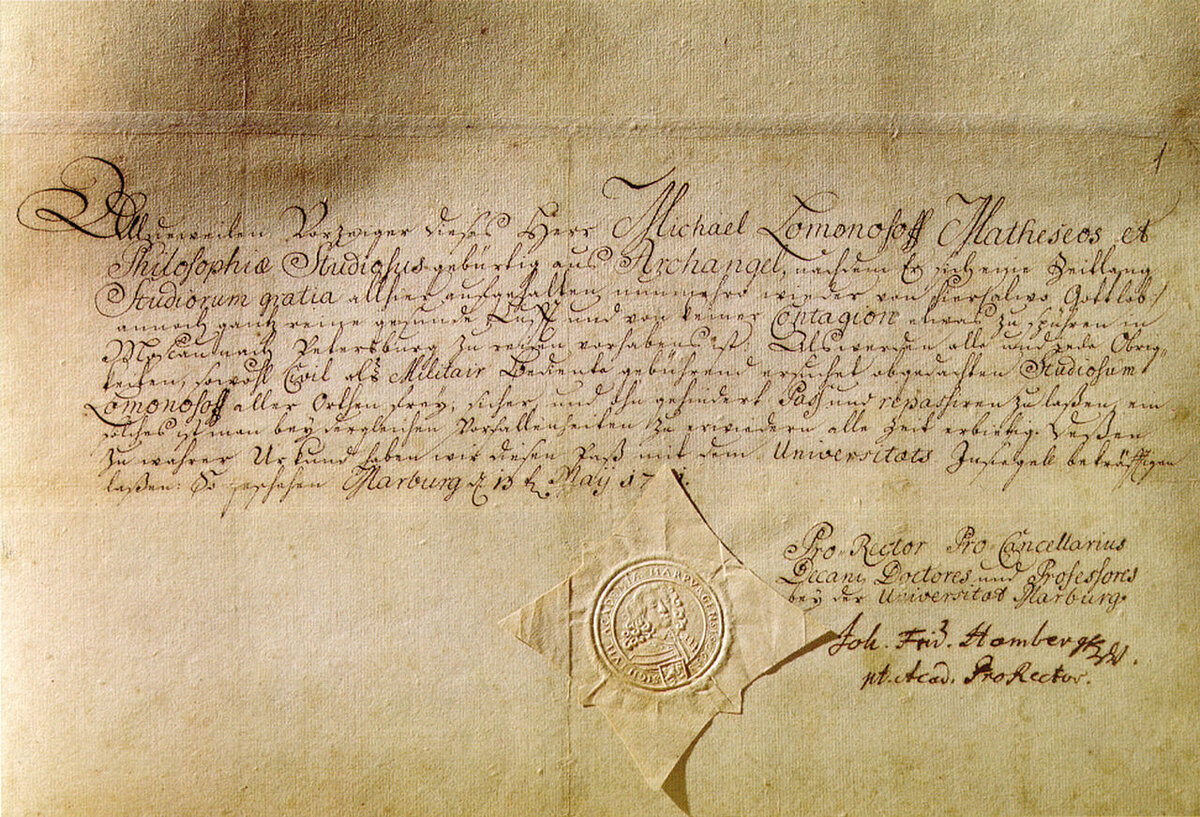 1
Alldieweilen Vorzeiger dieses Herr Michael Lomonosoff Matheseos et
Philosophiæ Studiosus gebürtig aus Archangel, nachdem Er sich eine Zeitlang
Studiorum gratia allhier aufgehalten, nunmehro wieder von hier alwo Gottlob /
annoch gantz reine gesunde Lufft und von keiner Contagion etwas zu spühren in
Moscau nach Petersburg zu reisen vorhabens ist. Als werden alle und jede Obrig-
keiten, sowohl Civil als Militair Bediente gebührend ersuchet obgedachten Studiosum
Lomonosoff aller Orthen frey, sicher, und ohngehindert Pass und repassiren zu laßen, ein
solches ist man bey dergleichen Vorfallenheiten zu erwiedern alle Zeit erbietig. Deßen
zu wahrer Urkund haben wir diesen Paß mit dem Universitäts Insiegel bekräfftigen
laßen: So geschehen Marburg d. 13 t. Maij 17
Pro-Rector Pro-Cancellarius
Decani, Doctores und Professores
bey der Universitæt Marburg.
Joh. Frid. Homberg
pt. Acad. ProRector.